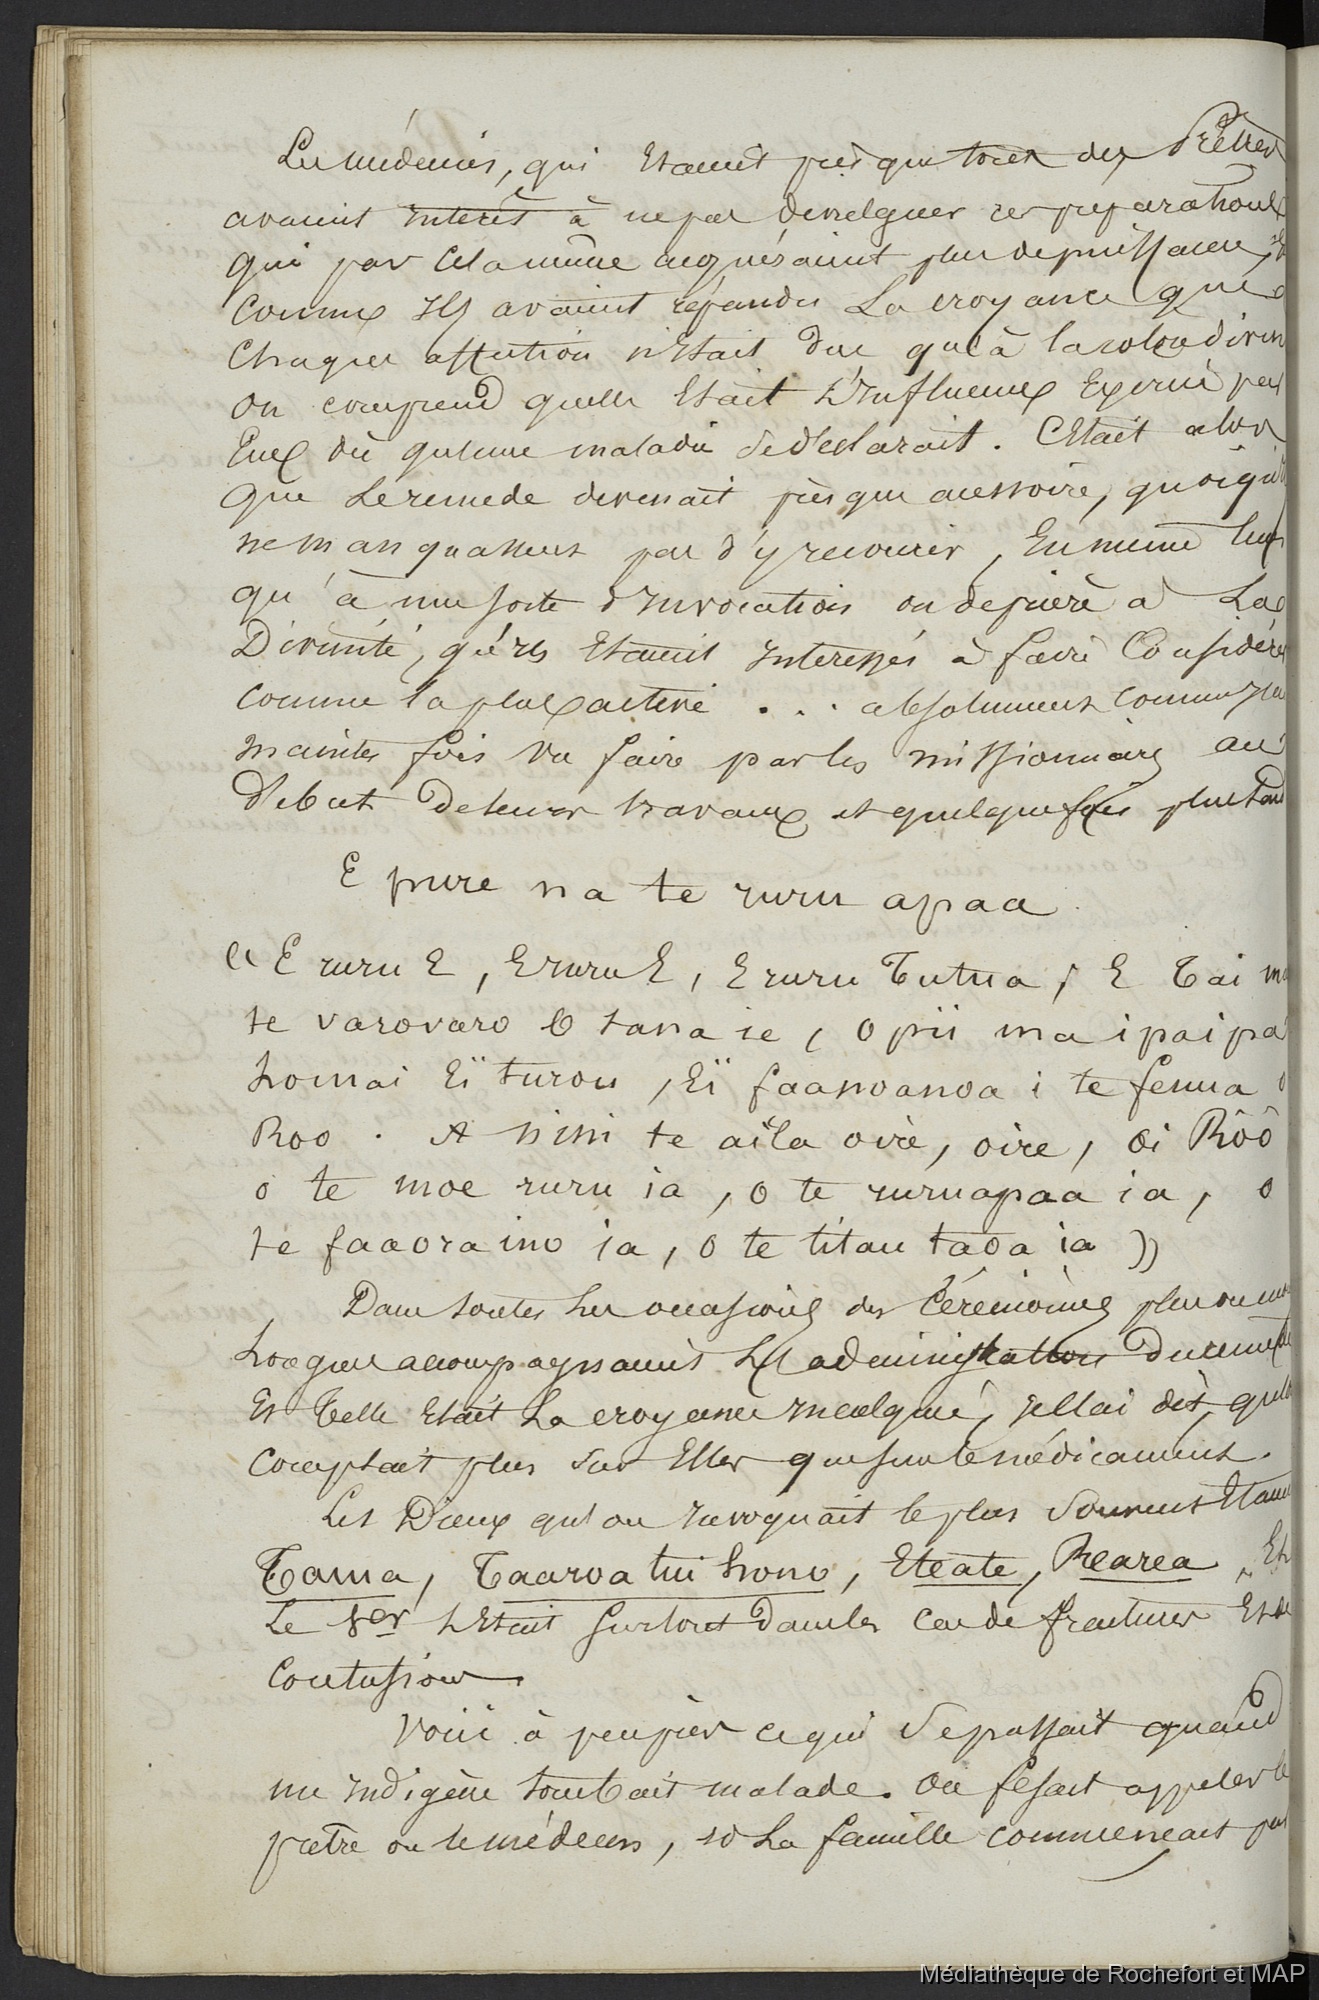 Les médecins, qui Etaient presque tous des Prêtres
avaient interêt à ne pas divulguer ces preparations
qui par cela même acquéraient plus de puissance, et
comme ils avaient répandu La croyance que
chaque affection n'Etait due qu'à la colère divine
on comprend quelle Etait L'Influence Exercée par
Eux dès qu'une maladie se déclarait. C'Etait alors
que Le remede devenait presque accessoire, quoiqu'ils
ne manquassent pas d'y recourir, En même temps
qu'à une sorte d'Invocation ou de prière à La
Divinité, qu'ils Etaient Interessés à faire Considérer
comme la plus active . . . absolument comme je l'ai
maintes fois vu faire par les missionnaires au
début de leurs travaux et quelquefois plus tard
E pure na te ruru apaa
« E ruru E, E ruru E, E ruru Tutua, E Tai ma
te varovaro E tana ie, O pii ma ipaipa
homai Eï turou, Eï faanoanoa i te fenua o
Roo. A nini te aïla oire, oire, oi Rôô
o te moe ruru ia, o te ruruapaa ia, o
te faaora ino ia, o te titau taoa ia »
Dans toutes Les occasions des Cérémonies plus ou moins
Longues accompagnaient L'administration du remède
Et Telle Etait La croyance inculquée, je l'ai dit, qu'on
comptait plus sur Elles que sur le médicament.
Les Dieux qu'on invoquait le plus Souvent Etaient
Tama, Taaroa tui hono, Eteate, Rearea, Et
Le 1er L'Etait surtout dans les cas de fractures Et de
contusions.
Voici à peu près ce qui Se passait quand
un Indigène tombait malade. On fesait appeler le
prêtre ou le médecin, et La famille commençait par
Médiathèque de Rochefort et MAP